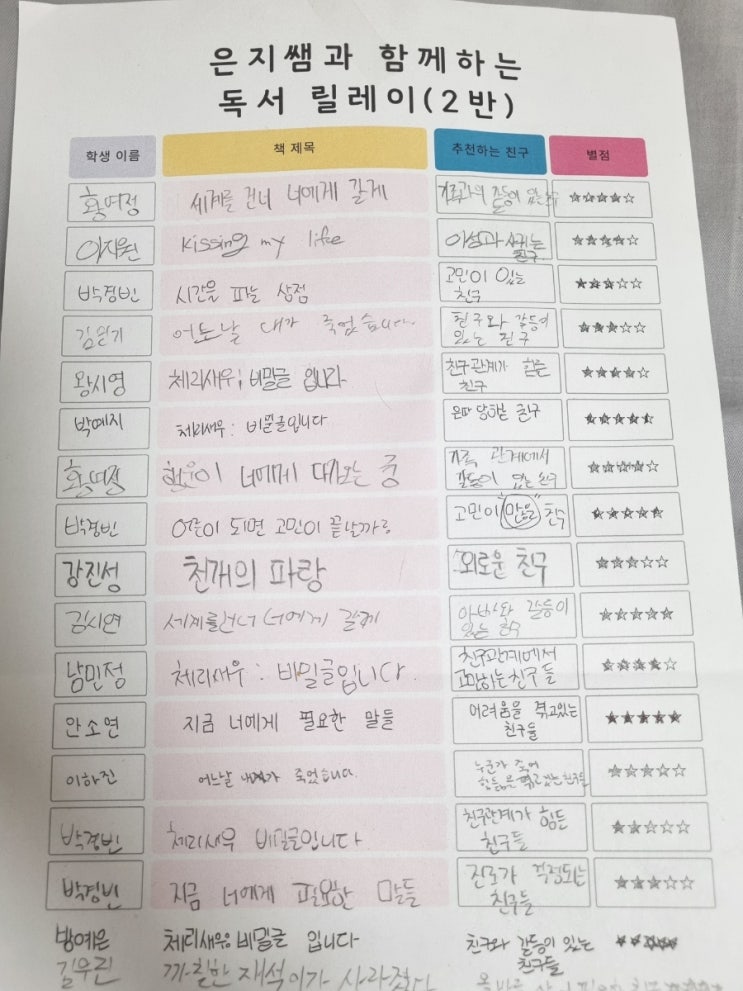 은지쌤과 함께하는
독서 릴레이(2반)
학생 이름 책 제목 추천하는 친구 별점
황여정 세계를 건너 너에게 갈게 가족과의 갈등이 있는 ★★★★☆
이지원 kissing my life 이성과 사귀는 친구 ★★★★☆
박경빈 시간을 파는 상점 고민이 있는 친구 ★★★☆☆
어느날 내가 죽었습니다 친구와 갈등이 있는 친구 ★★★☆☆
왕시영 체리새우; 비밀글 입니다 친구관계가 힘든 친구 ★★★★☆
박예지 체리새우: 비밀글입니다 왕따 당하는 친구 ★★★★★
황여정 너에게 다가오는 중 가족 관계에서 갈등이 있는 친구 ★★★★☆
박경빈 어른이 되면 고민이 끝날까? 고민이 "많은" 친구 ★★★★★
강진성 천개의 파랑 외로운 친구 ★★★☆☆
김시연 세계를건너 너에게 갈게 아빠와 갈등이 있는 친구 ★★★★★
남민정 체리새우: 비밀글입니다. 친구관계에서 고민하는 친구들 ★★★★☆
안소연 지금 너에게 필요한 말들 어려움을 겪고있는 친구들 ★★★★★
이하진 어느날 내가 죽었습니다. 누군가 죽어 힘듦을 겪고있는 친구들 ★★★★☆
박경빈 체리새우 비밀글입니다 친구관계가 힘든 친구들 ★★☆☆☆
박경빈 지금 너에게 필요한 말들 진로가 걱정되는 친구들 ★★★☆☆
방예은 체리새우: 비밀글 입니다 친구와 갈등이 있는 친구들 ★★★★★
길우린 까칠한 재석이가 사라졌다